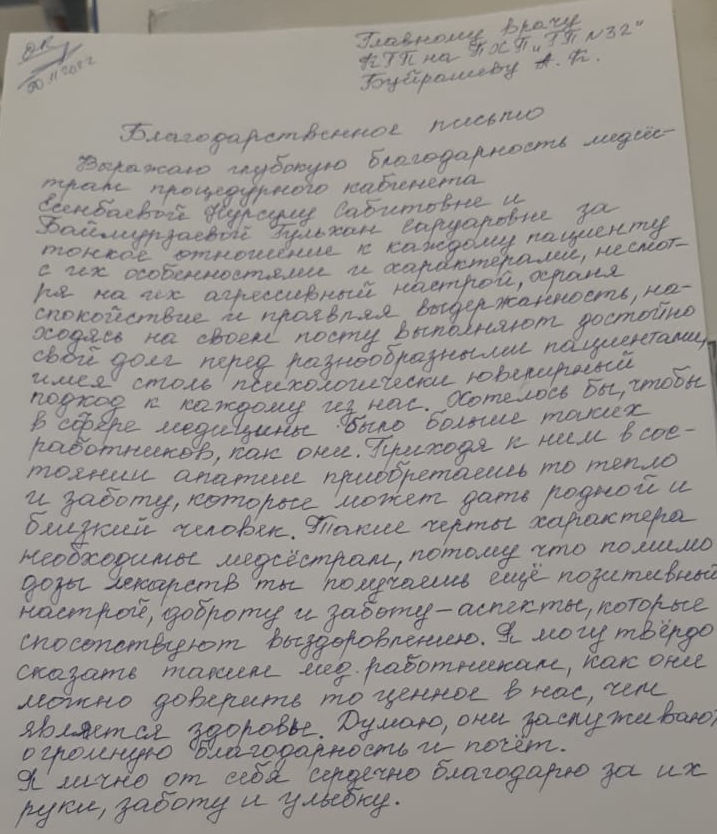 Главному врачу
КГП на ПХП „ГП №32"
Буйрашеву А. К.
Благодарственное письмо
Выражаю глубокую благодарность медсёс-
трам процедурного кабинета
Есенбаевой Нурсулу Сабитовне и
Баймурзаевой Гульхан Саруаровне за
тонкое отношение к каждому пациенту
с их особенностями и характерами, несмот-
ря на их агрессивный настрой, храня
спокойствие и проявляя выдержанность, на-
ходясь на своем посту выполняют достойно
свой долг перед разнообразными пациентами,
имея столь психологически ювелирный
подход к каждому из нас. Хотелось бы, чтобы
в сфере медицины было больше таких
работников, как они. Приходя к ним в сос-
тоянии апатии приобретаешь то тепло
и заботу, которые может дать родной и
близкий человек. Такие черты характера
необходимы медсёстрам, потому что помимо
дозы лекарств ты получаешь ещё позитивный
настрой, доброту и заботу – аспекты, которые
способствуют выздоровлению. Я могу твёрдо
сказать таким мед. работникам, как они
можно доверить то ценное в нас, чем
является здоровье. Думаю, они заслуживают
огромную благодарность и почёт.
Я лично от себя сердечно благодарю за их
руки, заботу и улыбку.